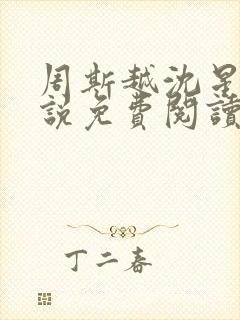 周斯越沈星
說免費閱讀
丁二春